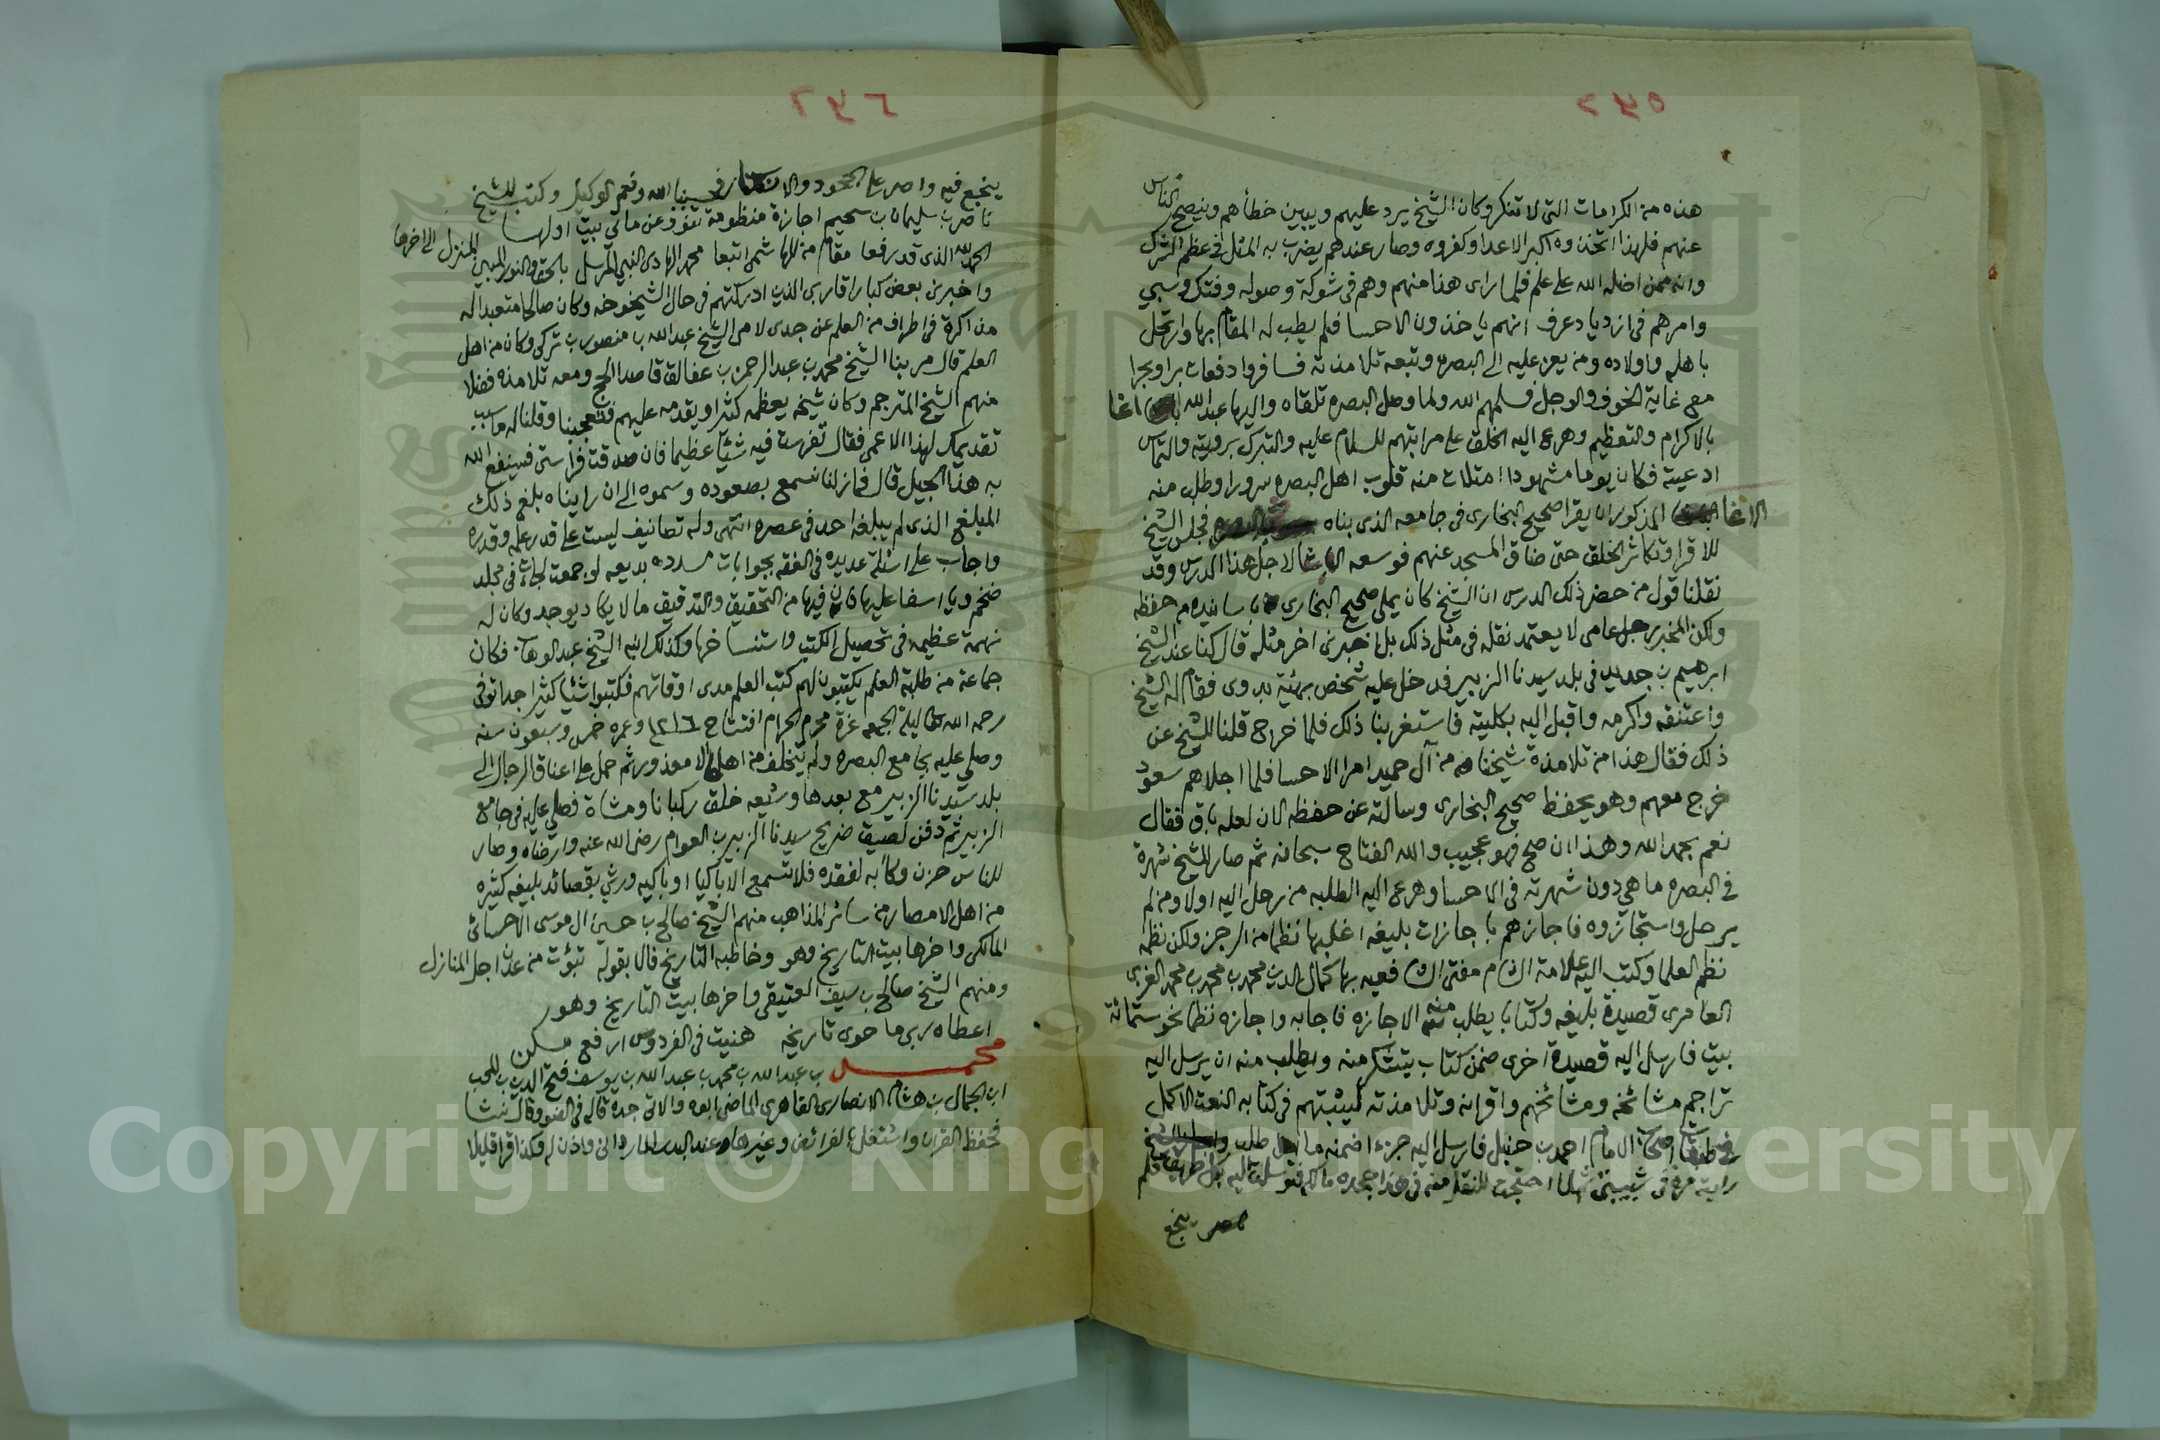 ٥٧٢
هذه من الكرامات التي لا تنكر وكان الشيخ يرد عليهم ويبين خطأهم وينصح الناس
عنهم فلهذا اتخذوه اكبر الاعدا وكفروه وصار عندهم يضرب به المثل في عظم الشرك
وانه ممن اضله الله على علم فلما راى هذا منهم وهم في شوكة وصوله وفتك وسبي
وامرهم في ازدياد عرف انهم ياخذون الاحسا فلم يطب له المقام بها وارتحل
باهله واولاده ومن يعز عليه الى البصره وتبعه تلامذته فسافروا دفعات برا وبحرا
مع غاية الخوف والوجل فسلمهم الله ولما وصل البصره تلقاه واليها عبدالله اغا
بالاكرام والتعظيم وهرع اليه الخلق على مراتبهم للسلام عليه والتبرك برويته والتماس
ادعيته فكان يوما مشهودا امتلات منه قلوب اهل البصره سرورا وطلب منه
الاغا المذكور ان يقرا صحيح البخاري في جامعه الذي بناه فجلس الشيخ
للاقرا وتكاثر الخلق حتى ضاق المسجد عنهم فوسعه لاجل هذا الدرس وقد
نقلنا قول من حضر ذلك الدرس ان الشيخ كان يملي صحيح البخاري باسانيده من حفظه
ولكن المخبر رجل عامي لا يعتمد نقله في مثل ذلك بل اخبرني اخر مثله قال كنا عند الشيخ
ابرهيم بن جديد في بلد سيدنا الزبير فدخل عليه شخص بهيئة بدوي فقام له الشيخ
واعتنقه واكرمه واقبل اليه بكليته فاستغربنا ذلك فلما خرج قلنا للشيخ عن
ذلك فقال هذا من تلامذة شيخنا من آل حميد امرا الاحسا فلما اجلاهم سعود
خرج معهم وهو يحفظ صحيح البخاري وسالته عن حفظه الان لعله باق فقال
نعم بحمد الله وهذا ان صح فهو عجيب والله الفتاح سبحانه ثم صار للشيخ شهرة
في البصره ما هي دون شهرته في الاحسا وهرع اليه الطلبه من رحل اليه اولا ومن لم
يرحل واستجازوه فاجازهم باجازات بليغه اغلبها نظما من الرجز ولكن نظمه
نظم العلما وكتب اليه علامة الشام مفتي الشافعيه بها كمال الدين محمد بن محمد بن محمد الغزي
العامري قصيدة بليغه وكتابا يطلب منه الاجازه فاجابه واجازه نظما نحو ستمائة
بيت فارسل اليه قصيدة اخرى ضمن كتاب يتشكر منه ويطلب منه ان يرسل اليه
تراجم مشائخه ومشائخهم واقرانه وتلامذته ليثبتهم في كتابه النعت الاكمل
في طبقات اصحاب الامام احمد بن حنبل فارسل اليه جزءا ضمنه ما طلب
رايته مرة في شبيبتي فلما احتجت للنقل منه في هذا جحده مالكه فتوسلت اليه بكل طريقة فلم
ينجع
٥٧٦
ينجع فيه واصر على الجحود والانكار فحسبنا الله ونعم الوكيل وكتب للشيخ
ناصر بن سليمان بن سحيم اجازة منظومة تنوف عن مائتي بيت اولها
الحمد لله الذي قد رفعا مقام من للهاشمي اتبعا محمد الهادي النبي المرسل بالحق والنور المبين المنزل الى اخرها
واخبرني بعض كبار اقاربي الذين ادركتهم في حال الشيخوخه وكان صالحا متعبدا له
مذاكرة في اطراف من العلم عن جدي لامي الشيخ عبدالله بن منصور بن تركي وكان من اهل
العلم قال مر بنا الشيخ محمد بن عبد الرحمن بن عفالق قاصدا الحج ومعه تلامذه فضلا
منهم الشيخ المترجم وكان شيخه يعظمه كثيرا ويقدمه عليهم فتعجبنا وقلنا له ما سبب
تقديمك لهذا الاعمى فقال تفرست فيه شئيا عظيما فان صدقت فراستي فسينفع الله
به هذا الجيل قال فما زلنا نسمع بصعوده وسموه الى ان رايناه بلغ ذلك
المبلغ الذي لم يبلغه احد في عصره انتهى وله تصانيف ليست على قدر علمه وقدره
واجاب على اسئلة عديده في الفقه بجوابات مسدده بديعه لو جمعت لجاءت في مجلد
ضخم ويا اسفا عليها فان فيها من التحقيق والتدقيق ما لا يكاد يوجد وكان له
نهمة عظيمه في تحصيل الكتب واستنساخها وكذلك ابنه الشيخ عبد الوهاب فكان
جماعة من طلبة العلم يكتبون لهم كتب العلم مدى اوقاتهم فكتبوا شئيا كثيرا جدا توفي
رحمه الله ليلة الجمعه غرة محرم الحرام افتتاح ١٢١٦ وعمره خمس وسبعون سنه
وصلي عليه بجامع البصره ولم يتخلف من اهلها الا معذور ثم حمل على اعناق الرجال الى
بلد سيدنا الزبير مع بعدها وشيعه خلق ركبانا ومشاة فصلي عليه في جامع
الزبير ثم دفن لصيق ضريح سيدنا الزبير بن العوام رضى الله عنه وارضاه وصار
للناس حزن وكآبه لفقده فلا تسمع الا باكيا او باكيه ورثي بقصائد بليغه كثيره
من اهل الامصار من سائر المذاهب منهم الشيخ صالح بن حسين آل موسى الاحسائي
المالكي واخرها بيت التاريخ وهو وخاطبه التاريخ فالا بقوله تبوئت من عدن اجل المنازل
ومنهم الشيخ صالح بن سيف العتيقي واخرها بيت التاريخ وهو
اعطاه ربي ما حوى تاريخه هنيت في الفردوس ارفع مسكن
محمد بن عبدالله بن محمد بن عبدالله بن يوسف فتح الدين بن المحب
ابن الجمال بن هشام الانصاري القاهري الماضي ابوه والاتي جده قاله في الضوء وقال نشا
فحفظ القران واشتغل بالفرائض وغيرها عند البدر المارداني واذن له فكذا قرا قليلا
Copyright © King Saud University